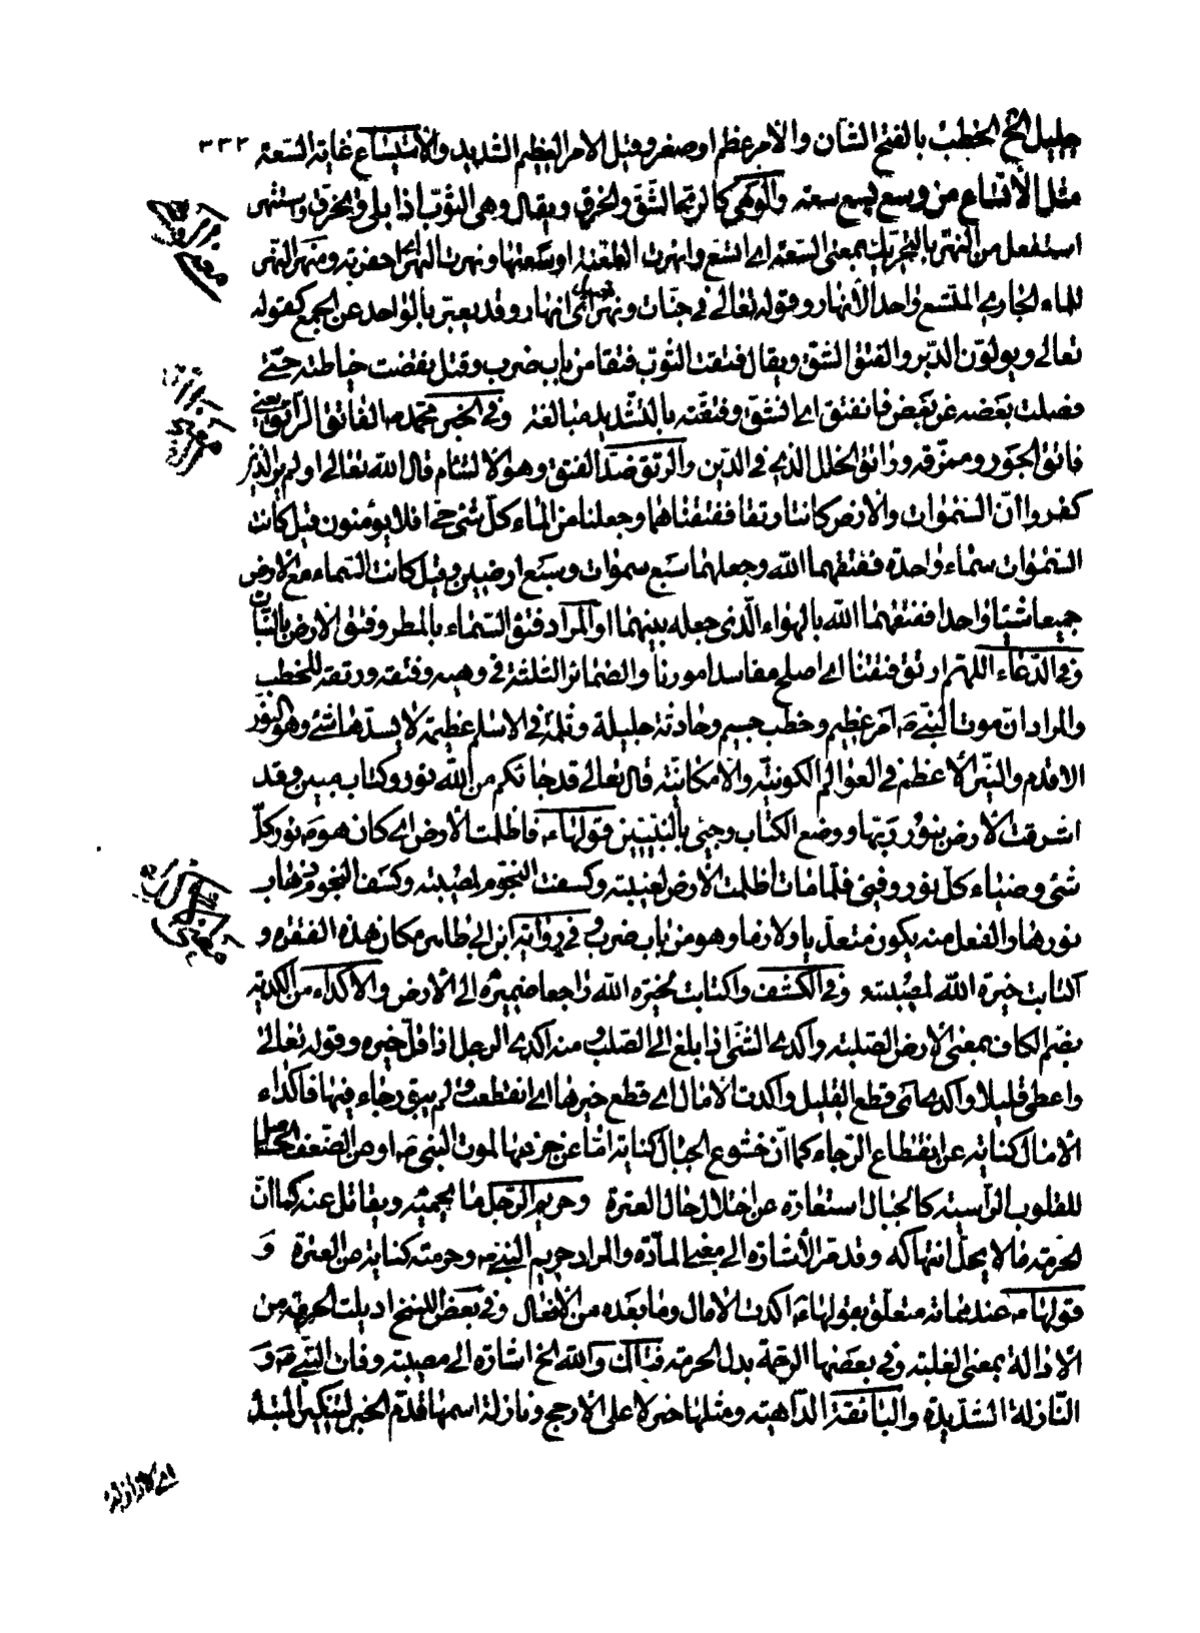 جليل الخ الخطب بالفتح الشأن والأمر عظم او صغر وقيل الامر العظيم الشديد والاستيساع غاية السعة ٣٣٢
مثل الاتساع من وسع يسع سعة والوهي كالرمي الشق والخرق ويقال وهى الثوب اذا بلى وانخرق واستنهر
استفعل من النهر بالتحريك بمعنى السعة اي اتسع وانهرت الطعنة اوسعتها ونهرت النهر اي حفرته ومنه النهر
للماء الجاري المتسع واحد الأنهار وقوله تعالى في جنات ونهر اي انهار وقد يعبر بالواحد عن الجمع كقوله
تعالى ويولون الدبر والفتق الشق ويقال فتقت الثوب فتقا من باب ضرب وقتل نقضت خياطته حتى
فصلت بعضه عن بعض فانفتق اي انشق وفتقته بالتشديد مبالغة وفي الخبر محمد ص الفاتق الراتق يعني
فاتق الجور وممزقه وراتق الخلل الذي في الدين والرتق ضد الفتق وهو الالتئام قال الله تعالى اولم ير الذين
كفروا ان السموات والارض كانتا رتقا ففتقناهما وجعلنا من الماء كل شيء حي افلا يؤمنون قيل كانت
السموات سماء واحدة ففتقهما الله وجعلهما سبع سموات وسبع ارضين وقيل كانت السماء مع الارض
جميعا شيئا واحدا ففتقهما الله بالهواء الذي جعله بينهما او المراد فتق السماء بالمطر وفتق الارض بالنبات
وفي الدعاء اللهم ارتق فتقنا اي اصلح مفاسد امورنا والضمائر الثلثة في وهيه وفتقه ورتقه للخطب
والمراد ان موت النبي ص امر عظيم وخطب جسيم وحادثة جليلة وثلمة في الاسلام عظيمة لا يسدها شئ وهو النور
الاقدم والنير الأعظم في العوالم الكونية والامكانية قال تعالى قد جائكم من الله نور وكتاب مبين وقد
اشرقت الارض بنور ربها ووضع الكتاب وجئ بالنبيين قولها ع فاظلمت الأرض اي كان هو ص نور كل
شئ وضياء كل نور وفئ فلما مات اظلمت الأرض لغيبته وكسفت النجوم لمصيبته وكسف النجوم ذهاب
نورها والفعل منه يكون متعديا ولازما وهو من باب ضرب وفي رواية ابن ابي طاهر مكان هذه الفقرة و
اكتابت خيرة الله لمصيبته وفي الكشف واكتابت لخيرة الله راجعا ضميره الى الأرض والاكداء من الكدية
بضم الكاف بمعنى الأرض الصلبة واكدى الشئ اذا بلغ الى الصلب ومنه اكدى الرجل اذا قل خيره وقوله تعالى
واعطى قليلا واكدى اي قطع القليل واكدت الامال اي قطع خيرها اي انقطعت ولم يبق رجاء فيها فاكداء
الأمال كناية عن انقطاع الرجاء كما ان خشوع الجبال كناية اما عن حزنها لموت النبي ص او من الضعف الحاصل
للقلوب الراسية كالجبال استعارة عن اختلال حال العترة وحريم الرجل ما يحميه ويقاتل عنه كما ان
الحرمة ما لا يحل انتهاكه وقد مر الأشارة الى معنى المادة والمراد حريم النبي ص وحرمته كناية عن العترة و
قولها ع عند مماته متعلق بقولها ع اكدت الامال وما بعده من الأفعال وفي بعض النسخ اديلت الحرمة من
الادالة بمعنى الغلبة وفي بعضها الرحمة بدل الحرمة فتلك والله الخ اشارة الى مصيبة وفات النبي ص و
النازلة الشديدة والبائقة الداهية ومثلها خبر لا على الارجح ونازلة اسمها قدم الخبر لتنكير المبتدا